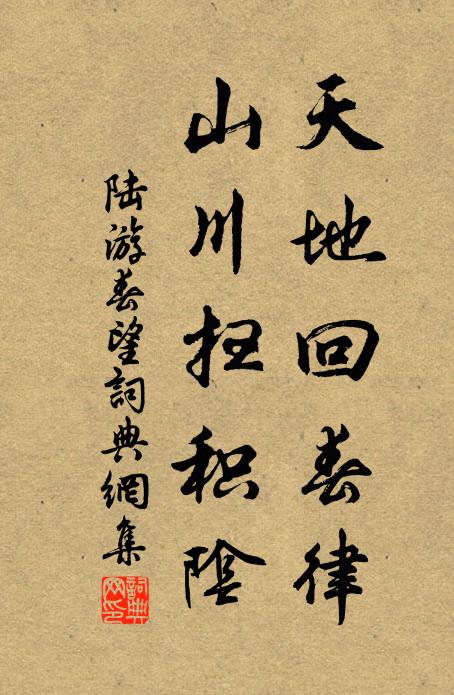 天地回春律
山川扫积陰
陆游春望詞典網集
詞典网印